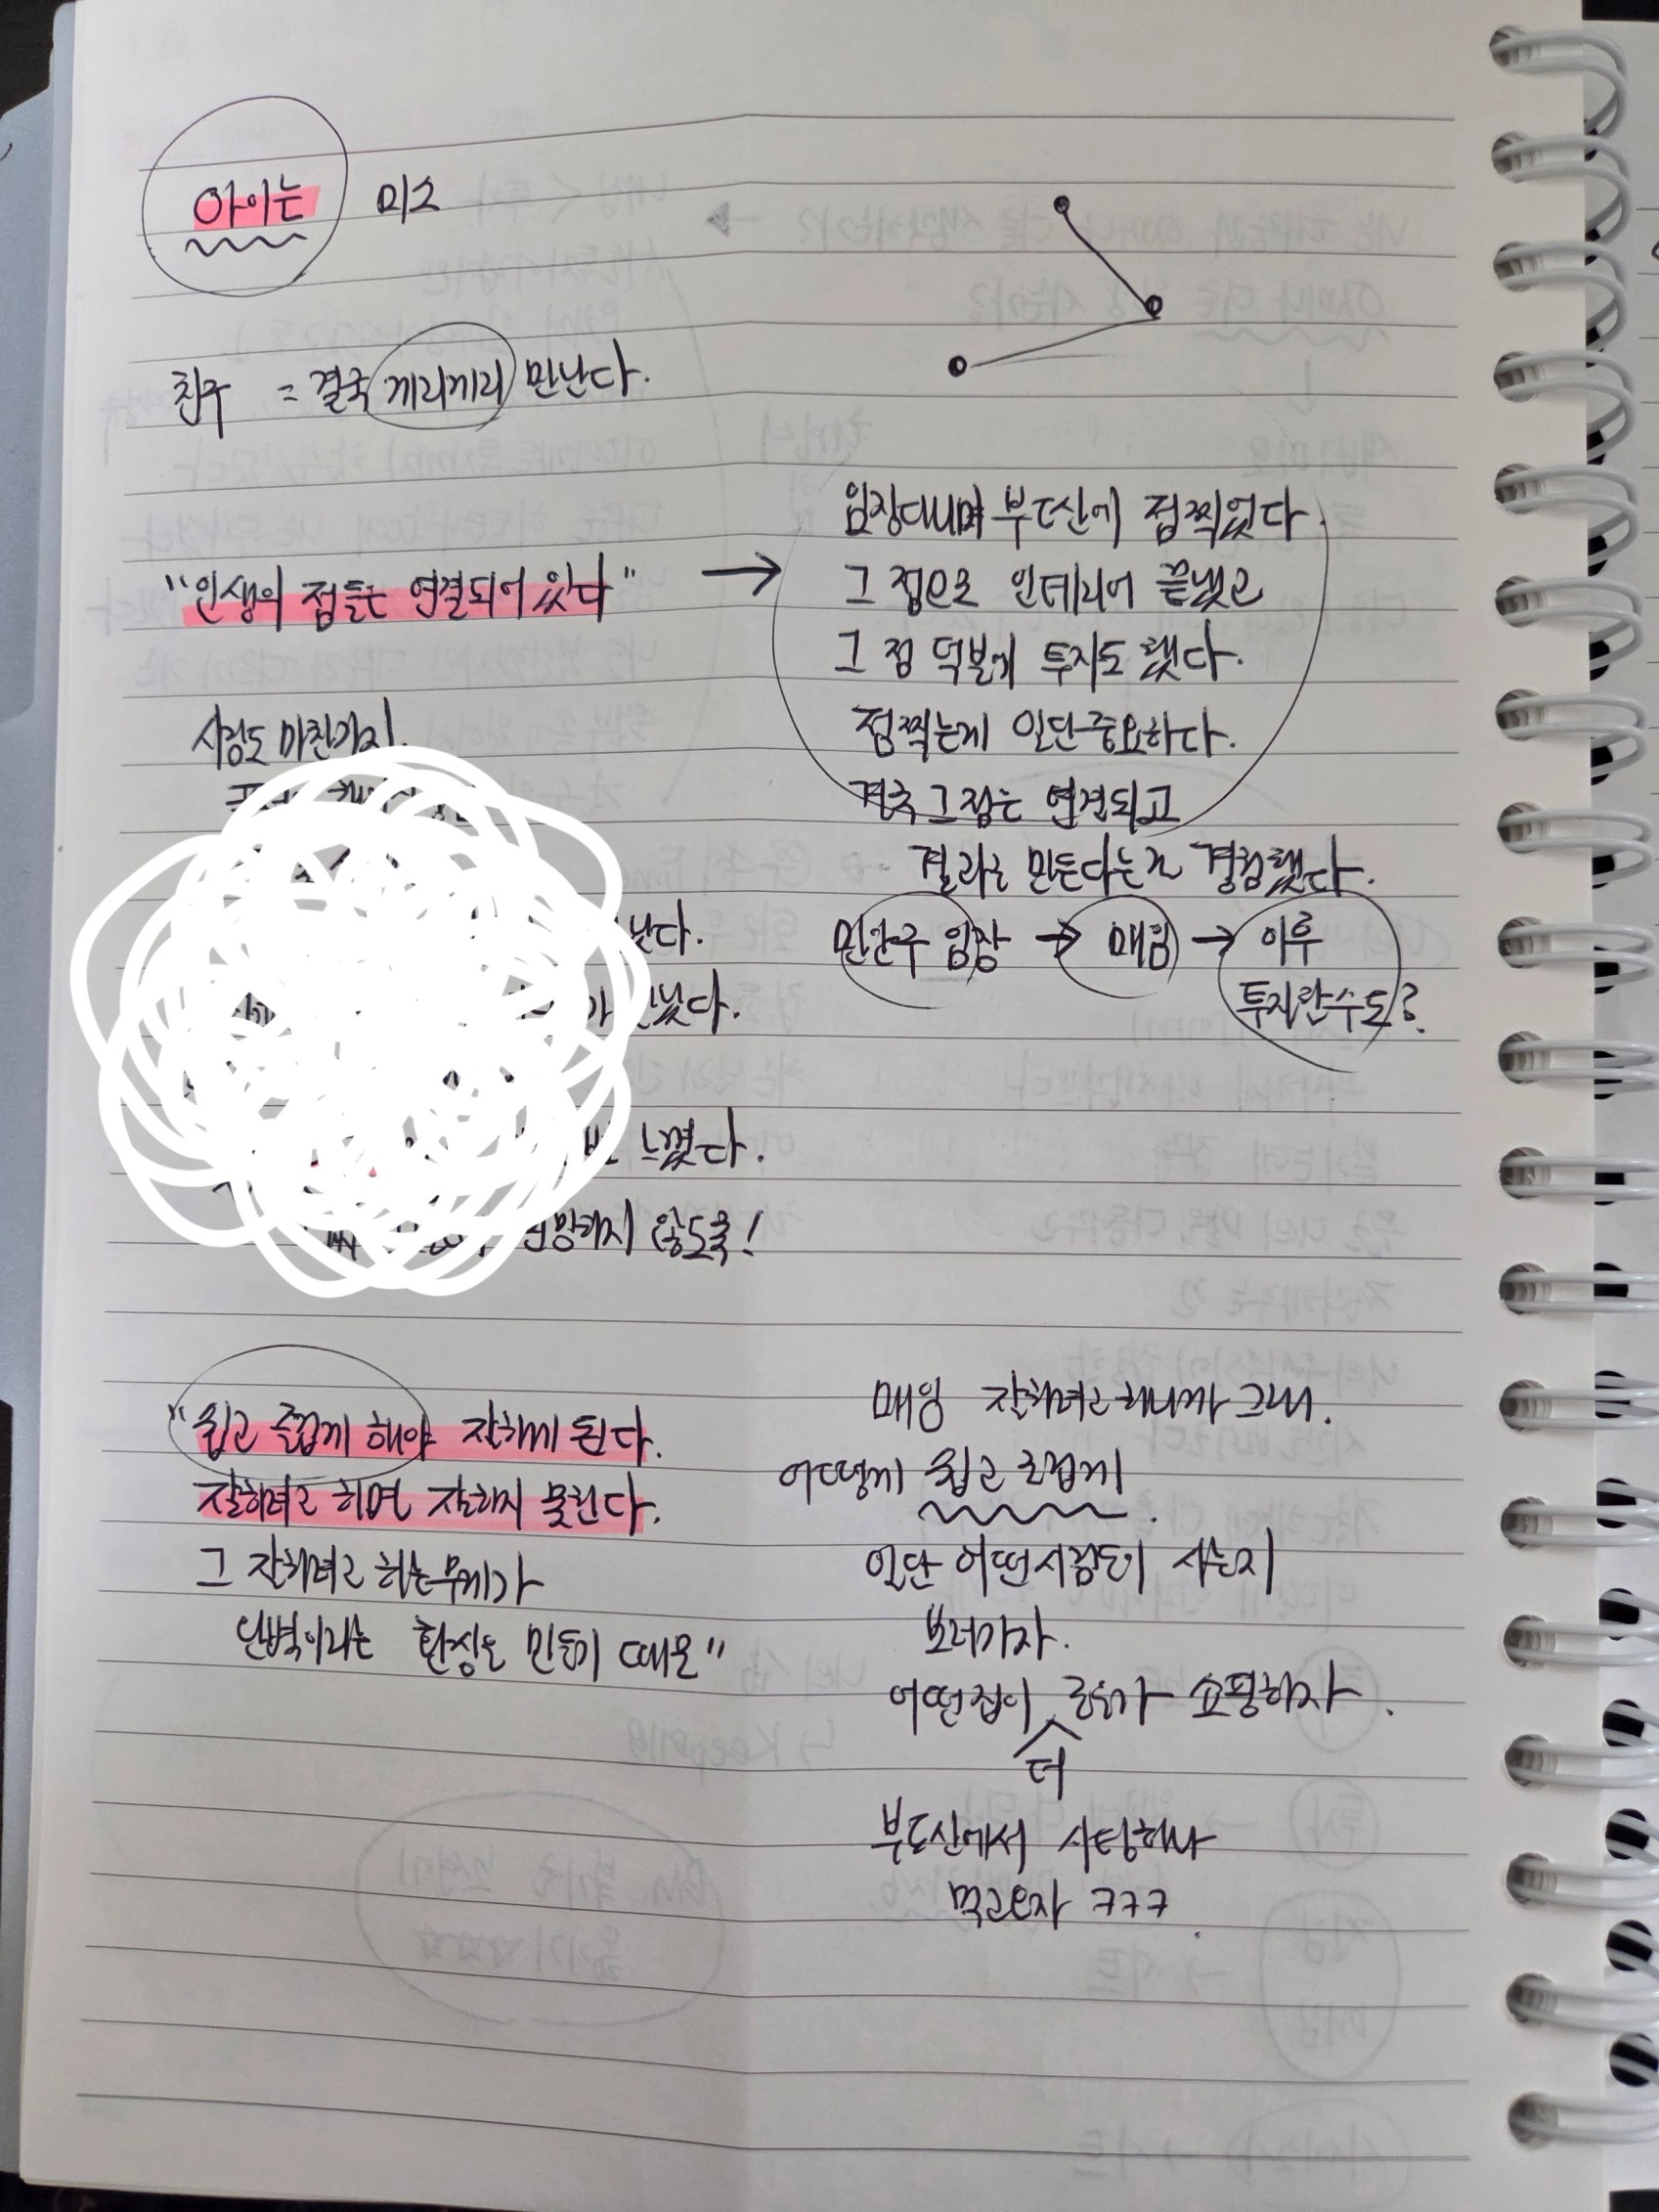 아이는 미소
친구 = 결국 끼리끼리 만난다.
"인생의 점들은 연결되어 있다" →
임장다니며 부동산에 점찍었다.
그 점으로 인테리어 끝냈고
그 점 덕분에 투자도 했다.
점찍는게 일단 중요하다.
결국 그 점은 연결되고
결과를 만든다는걸 경험했다.
임장 → 매임 → 이후
투자란수도?
사람도 마찬가지.
났다.
났다.
느꼈다.
하지 않도록!
"쉽고 즐겁게 해야 잘하게 된다.
잘하려고 하면 잘하지 못한다.
그 잘하려고 하는 무게가
완벽이라는 환상을 만들기 때문"
매임 잘하려고 하니까 그래.
어떻게 쉽고 즐겁게.
일단 어떤사람들이 사는지
보러가자.
어떤집이 더 좋은가 쇼핑하자.
부동산에서 사탕하나
먹고오자 ㅋㅋㅋ.